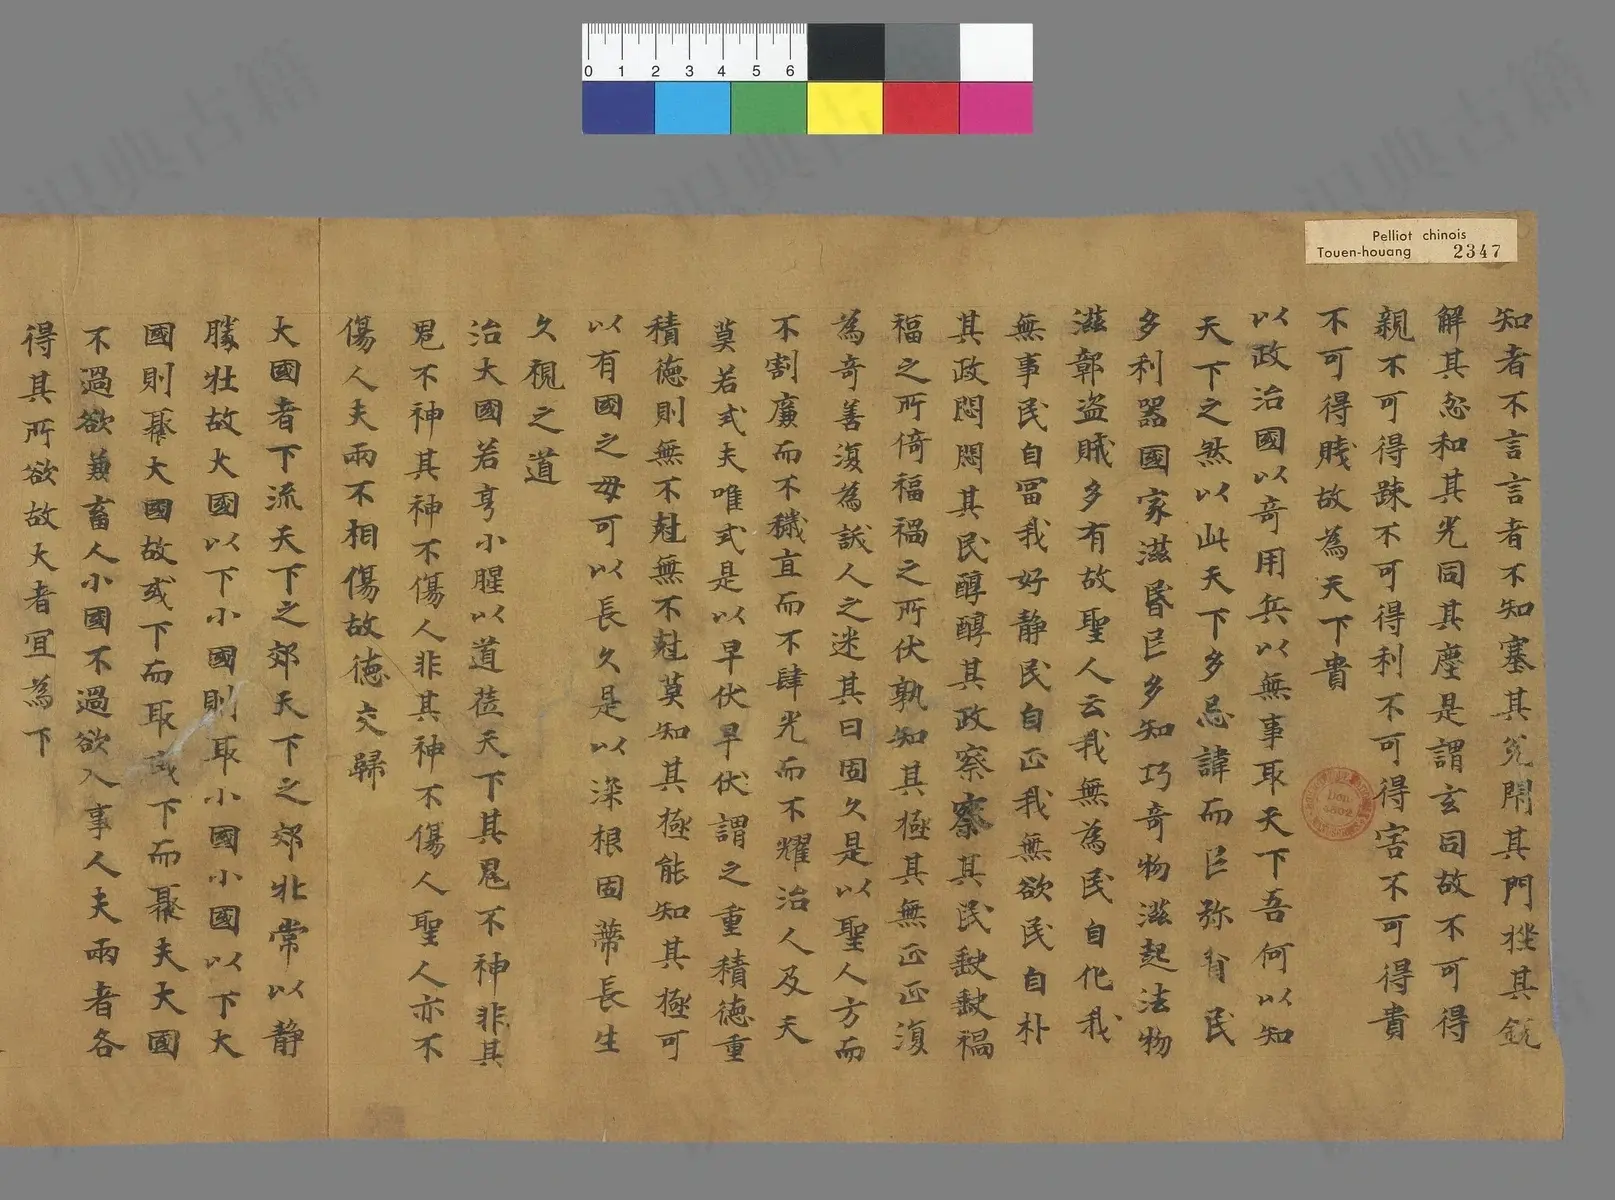 0 1 2 3 4 5 6
Pelliot chinois
Touen-houang 2347
知者不言言者不知塞其兊閇其門挫其銳
解其忿和其光同其塵是謂玄同故不可得
親不可得踈不可得利不可得害不可得貴
不可得賤故為天下貴
以政治國以奇用兵以無事取天下吾何以知
天下之然以此天下多忌諱而民弥貧民
多利器國家滋昏民多知巧奇物滋起法物
滋彰盗賊多有故聖人云我無為民自化我
無事民自冨我好静民自正我無欲民自朴
其政悶悶其民醇醇其政察察其民𡙇𡙇禍
福之所倚福禍之所伏孰知其極其無正正復
為奇善復為訞人之迷其日固久是以聖人方而
不割廉而不穢直而不肆光而不耀治人及天
莫若式夫唯式是以早伏早伏謂之重積徳重
積徳則無不尅無不尅莫知其極能知其極可
以有國之母可以長久是以深根固蒂長生
久視之道
治大國若亨小腥以道莅天下其鬼不神非其
鬼不神其神不傷人非其神不傷人聖人亦不
傷人夫兩不相傷故徳交歸
大國者下流天下之郊天下之郊牝常以静
勝牡故大國以下小國則取小國小國以下大
國則聚大國故或下而取或下而聚夫大國
不過欲兼畜人小國不過欲入事人夫兩者各
得其所欲故大者宜為下
识典古籍